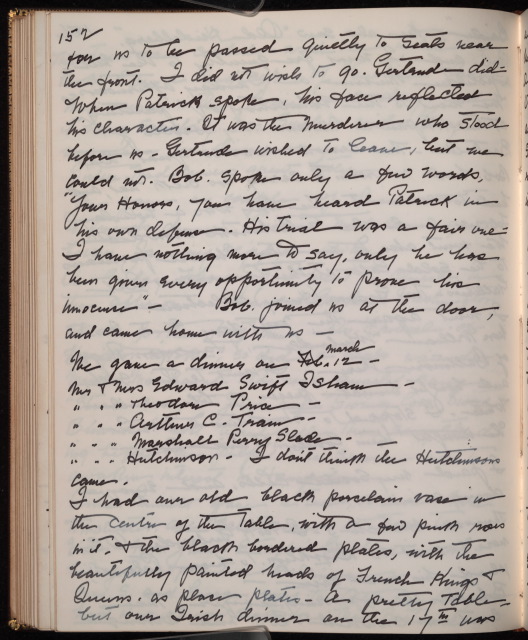 152
for us to be passed quietly to seats near
the front. I did not wish to go. Gertrude did-
When Patrick spoke, his face reflected
his character. It was the murderer who stood
before us - Gertrude wished to leave, but we
could not. Bob. spoke only a few words,
"Your Honors, you have heard Patrick in
his own defense. His trial was a fair one-
I have nothing more to say, only he has
been given every opportunity to prove his
innocense" - Bob. joined us at the door,
and came home with us -
We gave a dinner on Feb. march 12 -
Mr & Mrs Edward Swift Isham -
" " " Theodore Price -
" " " Arthur C. Train -
" " " Marshall Perry Slade -
" " " Hutchinson - I don't think the Hutchinsons
came.
I had our old black porcelain vase in
the centre of the table, with a few pink roses
in it, & the black bordered plates, with the
beautifully painted heads of French Kings &
Queens. as place plates - a pretty table -
but our Irish dinner on the 17th was